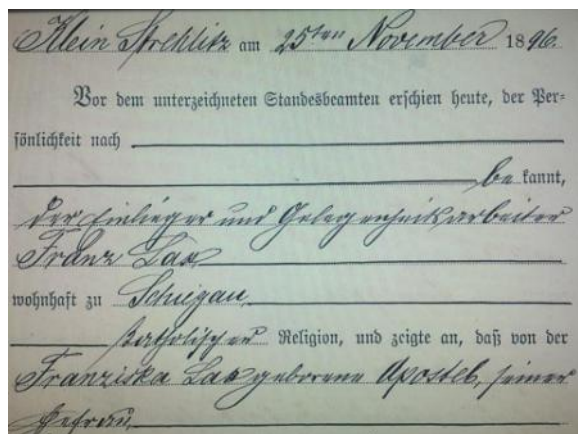 Klein Strehlitz am 25ten November 1896.
Vor dem unterzeichneten Standesbeamten erschien heute, der Per-
sönlichkeit nach
bekannt,
der Einlieger und Gelegenheitsarbeiter
Franz Lax
wohnhaft zu Schiegau,
katholischer Religion, und zeigte an, daß von der
Franziska Lax geborene Apostel, seiner
Ehefrau,